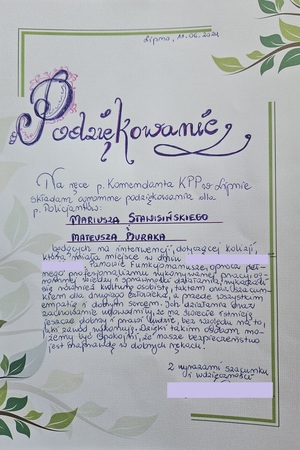 Lipno, 11.06.2021
Podziękowanie
Na ręce p. Komendanta KPP w Lipnie
składam ogromne podziękowania dla
p. Policjantów:
MARIUSZA STANISIŃSKIEGO
i
MATEUSZA BURAKA
będących na interwencji, dotyczącej kolizji,
która miała miejsce w dniu
Panowie Funkcjonariusze, oprócz peł-
nego profesjonalizmu wykonywanej pracy, og-
romnej wiedzy i sprawności działania, wykazali
się również kulturą osobistą, taktem oraz szacun-
kiem dla drugiego człowieka, a przede wszystkim
empatią i dobrym sercem. Ich działania oraz
zachowanie udowadnia, że na świecie istnieją
jeszcze dobrzy i prawi ludzie, bez względu na to,
jaki zawód wykonują. Dzięki takim osobom mo-
żemy być spokojni, że nasze bezpieczeństwo
jest naprawdę w dobrych rękach!
Z wyrazami szacunku
i wdzięczności